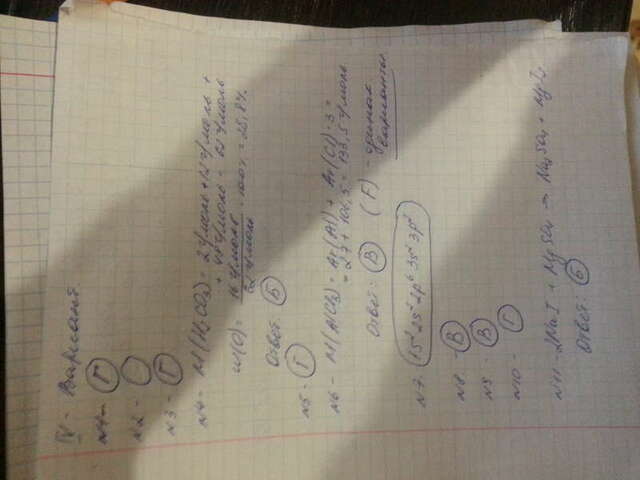 IV - Вариант.
№1 - Г
№2 -
№3 - Г
№4 - M(H2CO3) = 2 г/моль + 12 г/моль +
+ 48 г/моль = 62 г/моль
w(O) = 16 г/моль / 62 г/моль · 100% = 25,8%
Ответ: Б
№5 - Г
№6 - M(AlCl3) = Ar(Al) + Ar(Cl)·3 =
= 27 + 106,5 = 133,5 г/моль
Ответ: В (F) -
варианты
№7. 1s² 2s² 2p⁶ 3s² 3p²
№8 - В
№9 В
№10 - Г
№11 - 2NaI + HgSO4 → Na2SO4 + HgI2
Ответ: Б